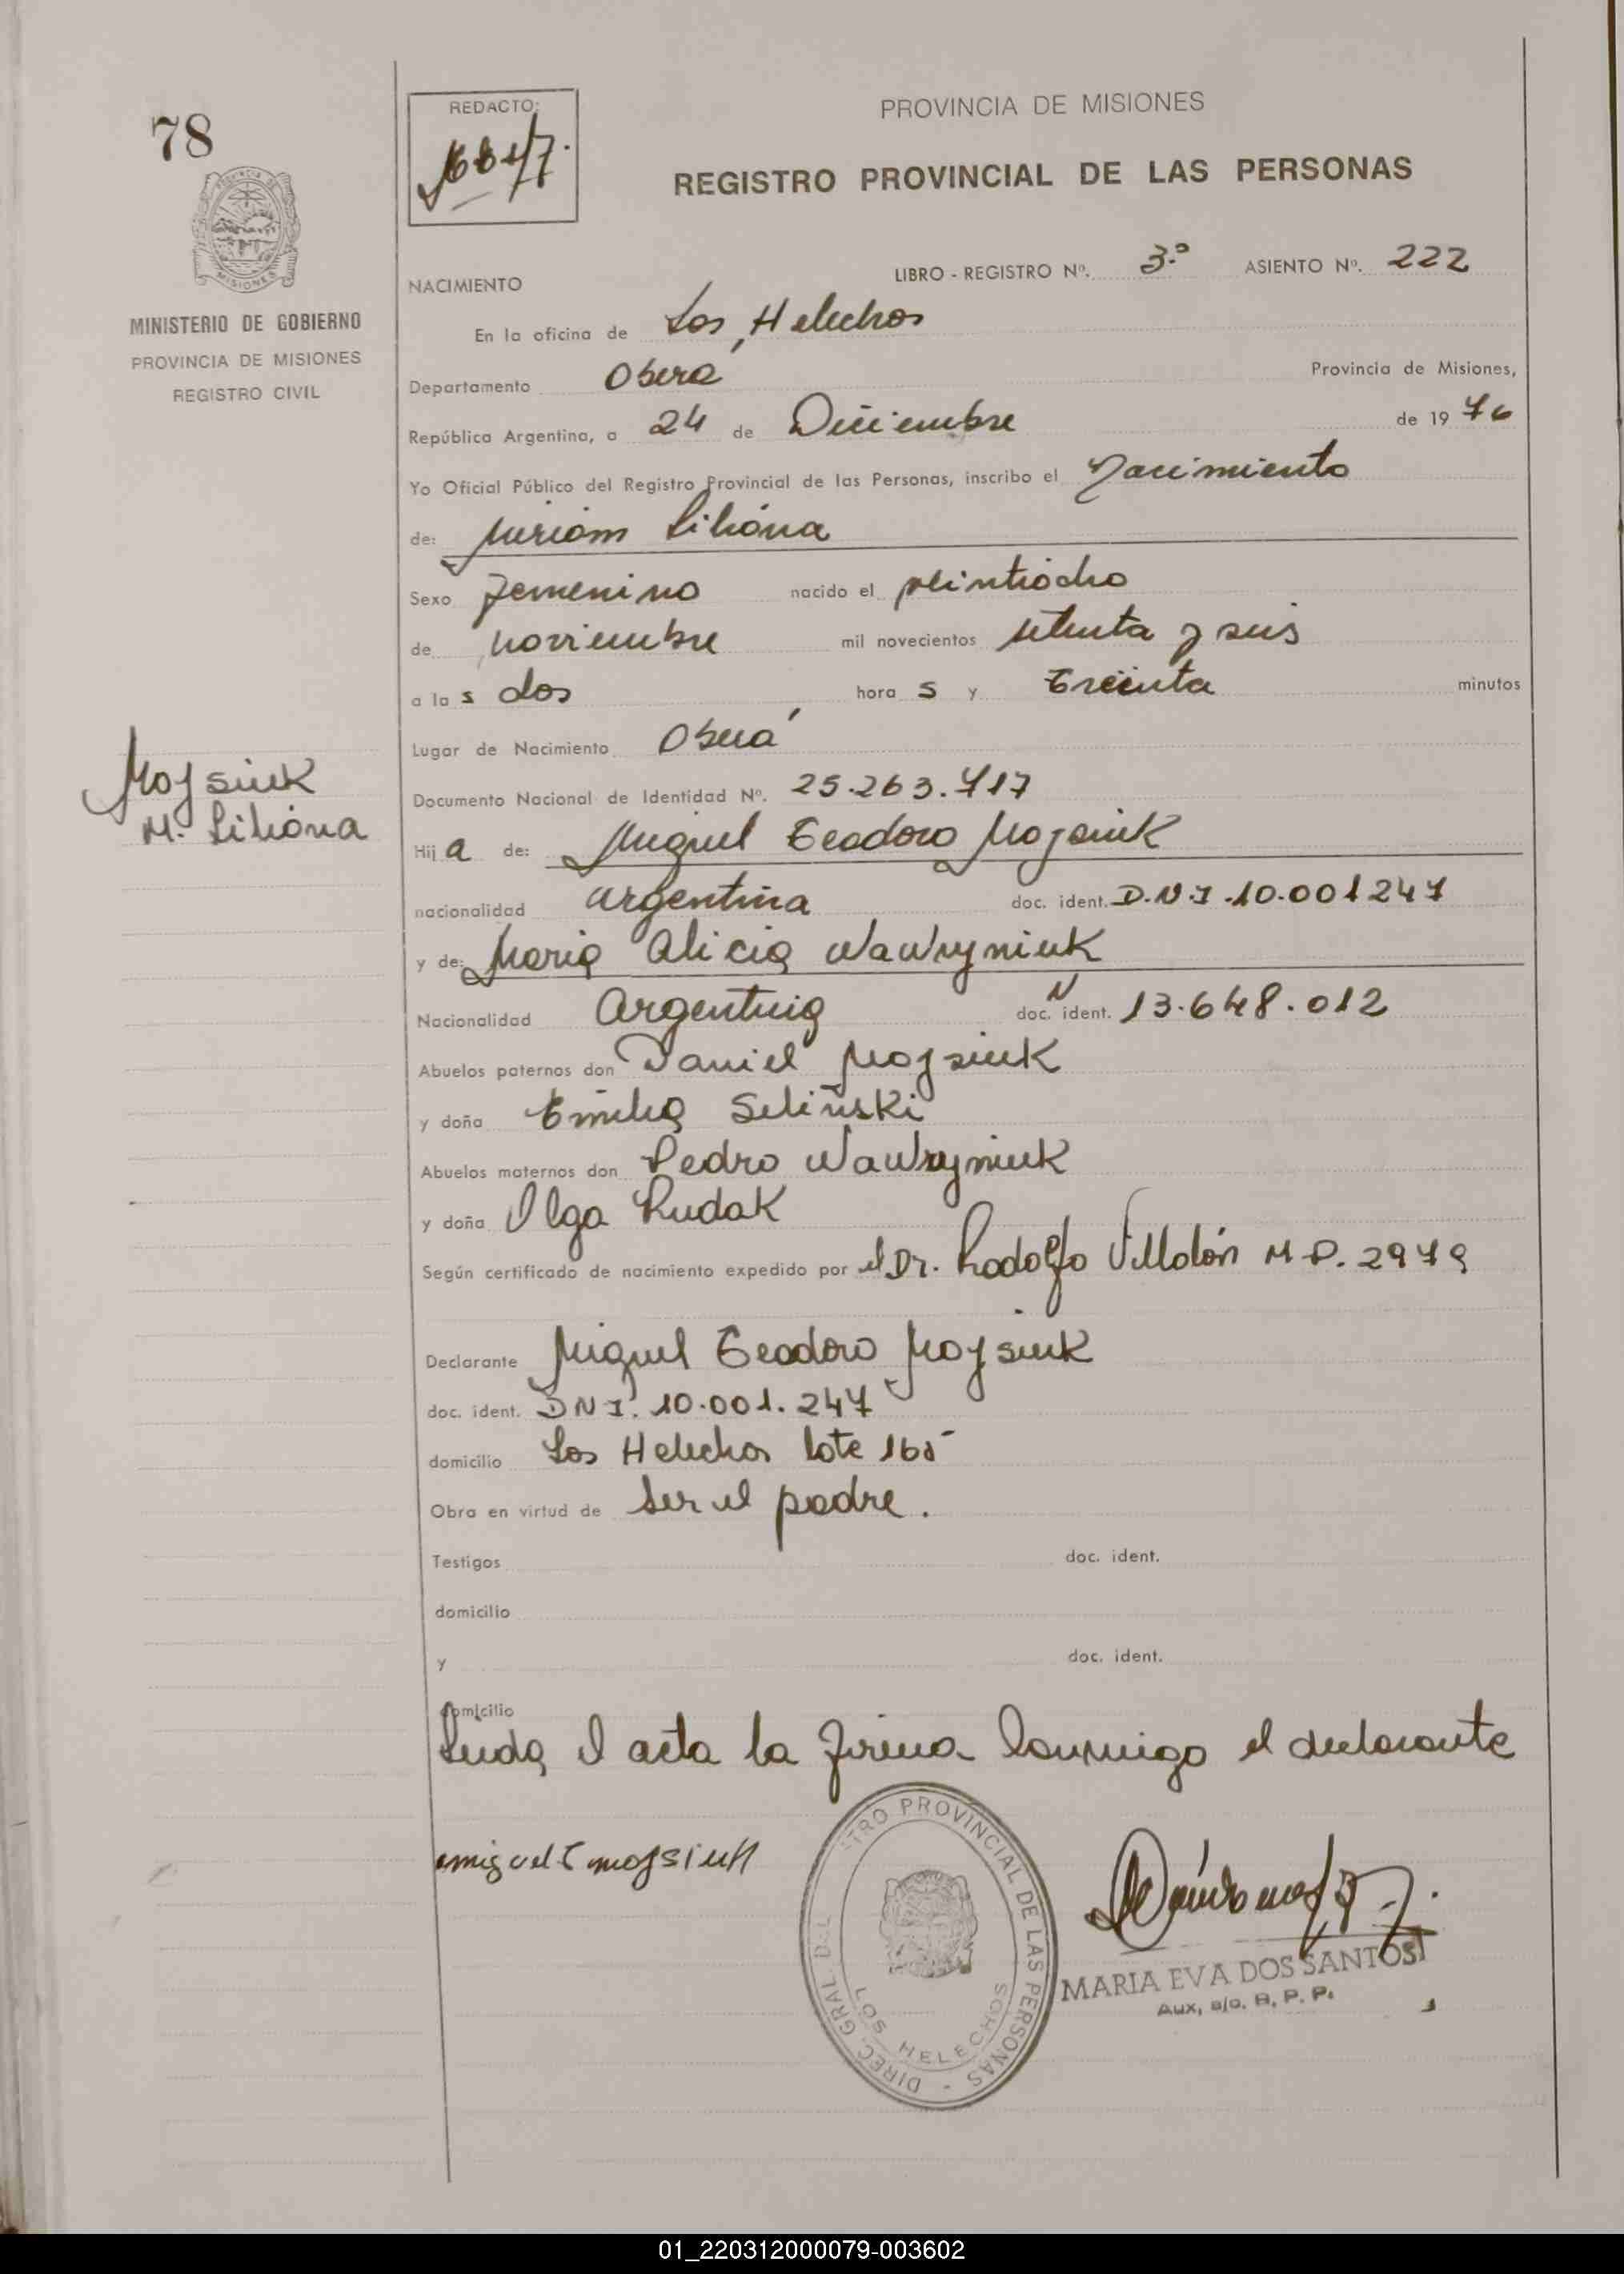 78
REDACTO:
PROVINCIA DE MISIONES
REGISTRO PROVINCIAL DE LAS PERSONAS
MINISTERIO DE GOBIERNO
PROVINCIA DE MISIONES
REGISTRO CIVIL
NACIMIENTO LIBRO - REGISTRO Nº. 3.º ASIENTO Nº. 222
En la oficina de Los Helechos
Departamento Oberá Provincia de Misiones,
República Argentina, a 24 de Diciembre de 1976
Yo Oficial Público del Registro Provincial de las Personas, inscribo el Nacimiento
de: Miriam Liliana
Sexo Femenino nacido el veintiocho
de noviembre mil novecientos setenta y seis
a las dos horas y treinta minutos
Lugar de Nacimiento Oberá
Mojsiuk
M. Liliana
Documento Nacional de Identidad Nº. 25.263.717
Hija de: Miguel Teodoro Mojsiuk
nacionalidad argentina doc. ident. D.N.I. 10.001247
y de: Maria Alicia Wawryniuk
Nacionalidad Argentina doc. N ident. 13.648.012
Abuelos paternos don Daniel Mojsiuk
y doña Emilia Seliñski
Abuelos maternos don Pedro Wawryniuk
y doña Olga Rudak
Según certificado de nacimiento expedido por el Dr. Rodolfo Villalón M.P. 2979
Declarante Miguel Teodoro Mojsiuk
doc. ident. DNI. 10.001.247
domicilio Los Helechos lote 165
Obra en virtud de ser el padre.
Testigos doc. ident.
domicilio
y doc. ident.
domicilio
Leida el acta la firma conmigo el declarante
miguel T mojsiuk
DIREC. GRAL. DEL STRO PROVINCIAL DE LAS PERSONAS -
LOS HELECHOS
MARIA EVA DOS SANTOS
Aux. a/c. R. P. P.
01_220312000079-003602